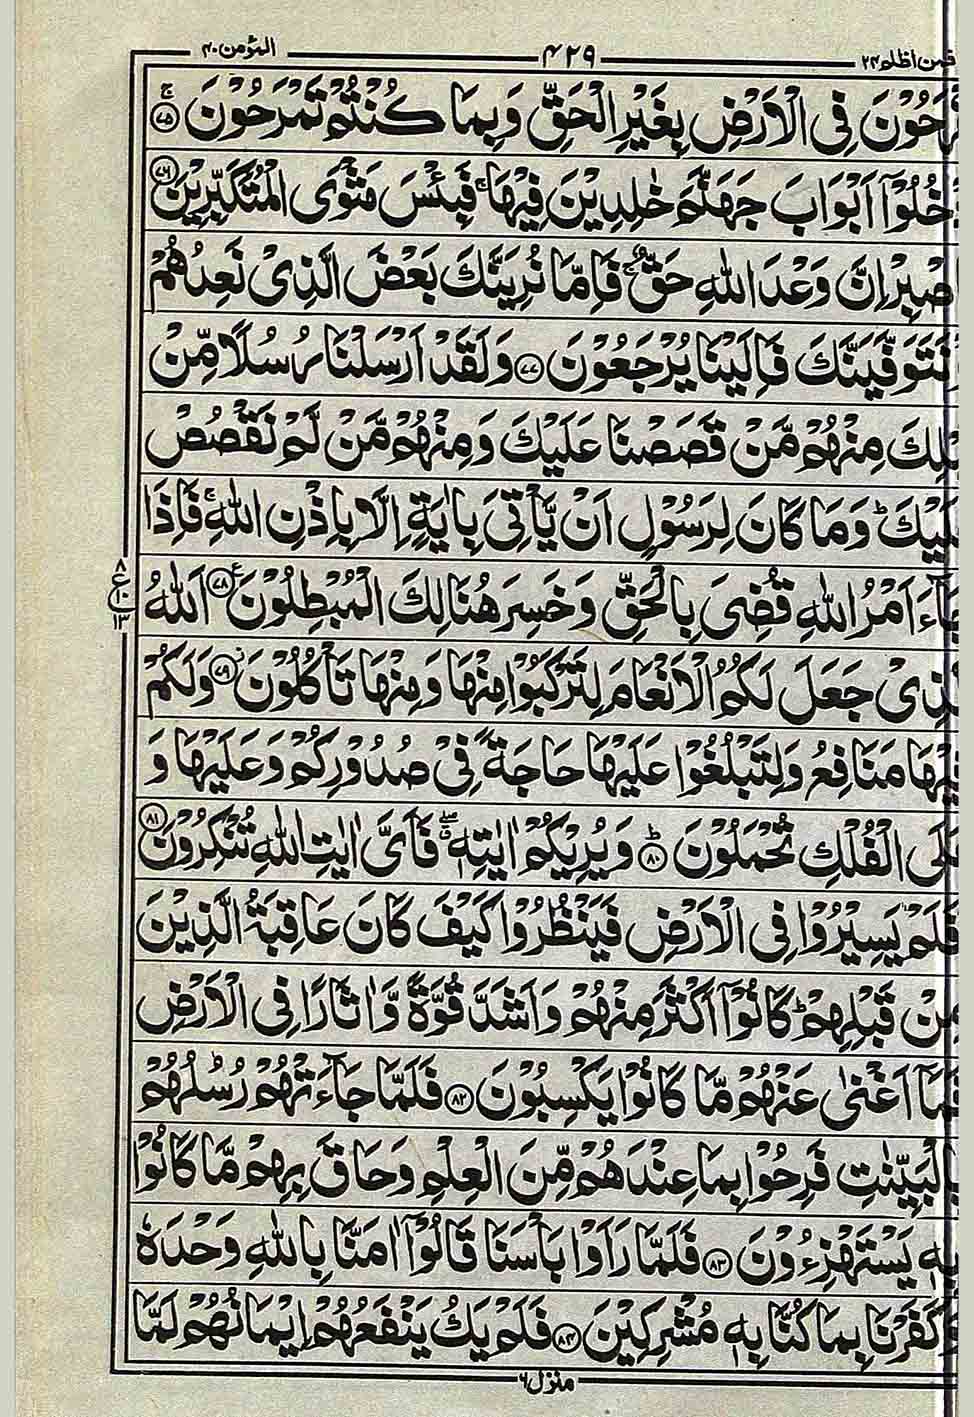 المؤمن ٤٠ ٤٢٩ فمن اظلم ٢٤
فِی الْاَرْضِ بِغَیْرِ الْحَقِّ وَبِمَا كُنْتُمْ تَمْرَحُوْنَ ۚ﴿٧٥﴾
اَبْوَابَ جَهَنَّمَ خٰلِدِیْنَ فِیْهَا ۚ فَبِئْسَ مَثْوَی الْمُتَكَبِّرِیْنَ ﴿٧٦﴾
اِنَّ وَعْدَ اللّٰهِ حَقٌّ ۚ فَاِمَّا نُرِیَنَّكَ بَعْضَ الَّذِیْ نَعِدُهُمْ
نَتَوَفَّیَنَّكَ فَاِلَیْنَا یُرْجَعُوْنَ ﴿٧٧﴾ وَلَقَدْ اَرْسَلْنَا رُسُلًا مِّنْ
مِنْهُمْ مَّنْ قَصَصْنَا عَلَیْكَ وَمِنْهُمْ مَّنْ لَّمْ نَقْصُصْ
وَمَا كَانَ لِرَسُوْلٍ اَنْ یَّاْتِیَ بِاٰیَةٍ اِلَّا بِاِذْنِ اللّٰهِ ۚ فَاِذَا
اَمْرُ اللّٰهِ قُضِیَ بِالْحَقِّ وَخَسِرَ هُنَالِكَ الْمُبْطِلُوْنَ ﴿٧٨﴾ اَللّٰهُ
جَعَلَ لَكُمُ الْاَنْعَامَ لِتَرْكَبُوْا مِنْهَا وَمِنْهَا تَاْكُلُوْنَ ﴿٧٩﴾ وَلَكُمْ
مَنَافِعُ وَلِتَبْلُغُوْا عَلَیْهَا حَاجَةً فِیْ صُدُوْرِكُمْ وَعَلَیْهَا وَ
الْفُلْكِ تُحْمَلُوْنَ ﴿٨٠﴾ وَیُرِیْكُمْ اٰیٰتِهٖ فَاَیَّ اٰیٰتِ اللّٰهِ تُنْكِرُوْنَ ﴿٨١﴾
یَسِیْرُوْا فِی الْاَرْضِ فَیَنْظُرُوْا كَیْفَ كَانَ عَاقِبَةُ الَّذِیْنَ
مِنْ قَبْلِهِمْ ؕ كَانُوْۤا اَكْثَرَ مِنْهُمْ وَاَشَدَّ قُوَّةً وَّاٰثَارًا فِی الْاَرْضِ
اَغْنٰی عَنْهُمْ مَّا كَانُوْا یَكْسِبُوْنَ ﴿٨٢﴾ فَلَمَّا جَآءَتْهُمْ رُسُلُهُمْ
فَرِحُوْا بِمَا عِنْدَهُمْ مِّنَ الْعِلْمِ وَحَاقَ بِهِمْ مَّا كَانُوْا
یَسْتَهْزِءُوْنَ ﴿٨٣﴾ فَلَمَّا رَاَوْا بَاْسَنَا قَالُوْۤا اٰمَنَّا بِاللّٰهِ وَحْدَهٗ
كَفَرْنَا بِمَا كُنَّا بِهٖ مُشْرِكِیْنَ ﴿٨٤﴾ فَلَمْ یَكُ یَنْفَعُهُمْ اِیْمَانُهُمْ لَمَّا
منزل ٦
٨
ع
١٠
١٣